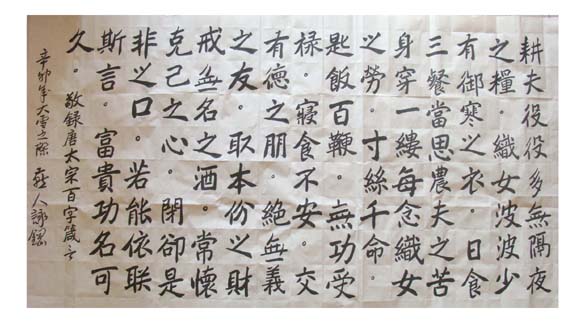 耕夫役役多無隔夜
之糧。織女波波少
有御寒之衣。日食
三餐當思農夫之苦
身穿一縷每念織女
之勞。寸絲千命。
匙飯百鞭。無功受
祿。寢食不安。交
有德之朋。絕無義
之友。取本份之財
戒無名之酒。常懷
克己之心。閉卻是
非之口。若能依朕
斯言。富貴功名可
久。敬錄唐太宗百字箴言
辛卯年大雪之際 人詠